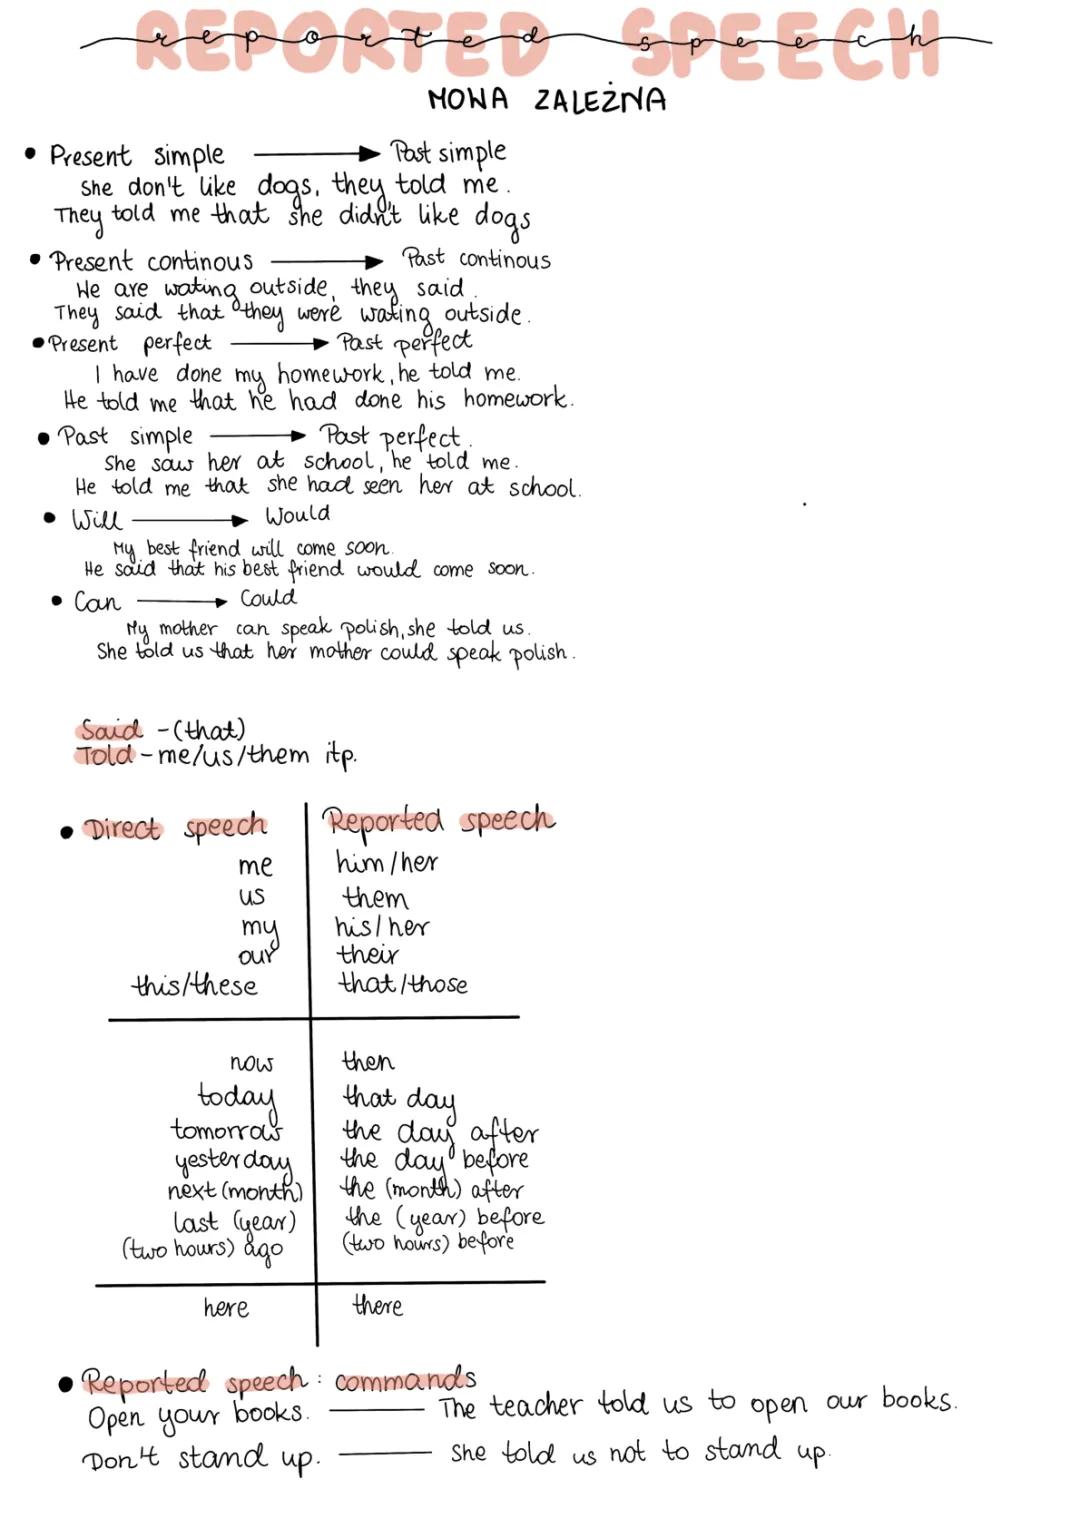 REPORTED SPEECH
reported speech
MOWA ZALEŻNA
• Present simple → Past simple
She don't like dogs, they told me.
They told me that she didn't like dogs
• Present continous → Past continous
We are wating outside, they said.
They said that they were wating outside.
• Present perfect → Past perfect
I have done my homework, he told me.
He told me that he had done his homework.
• Past simple → Past perfect.
She saw her at school, he told me.
He told me that she had seen her at school.
• Will → Would
My best friend will come soon.
He said that his best friend would come soon.
• Can → Could
My mother can speak polish, she told us.
She told us that her mother could speak polish.
Said - (that)
Told - me/us/them itp.
• Direct speech Reported speech
me him/her
us them
my his/her
our their
this/these that/those
now then
today that day
tomorrow the day after
yesterday the day before
next (month) the (month) after
last (year) the (year) before
(two hours) ago (two hours) before
here there
• Reported speech: commands
Open your books. — The teacher told us to open our books.
Don't stand up. — She told us not to stand up.